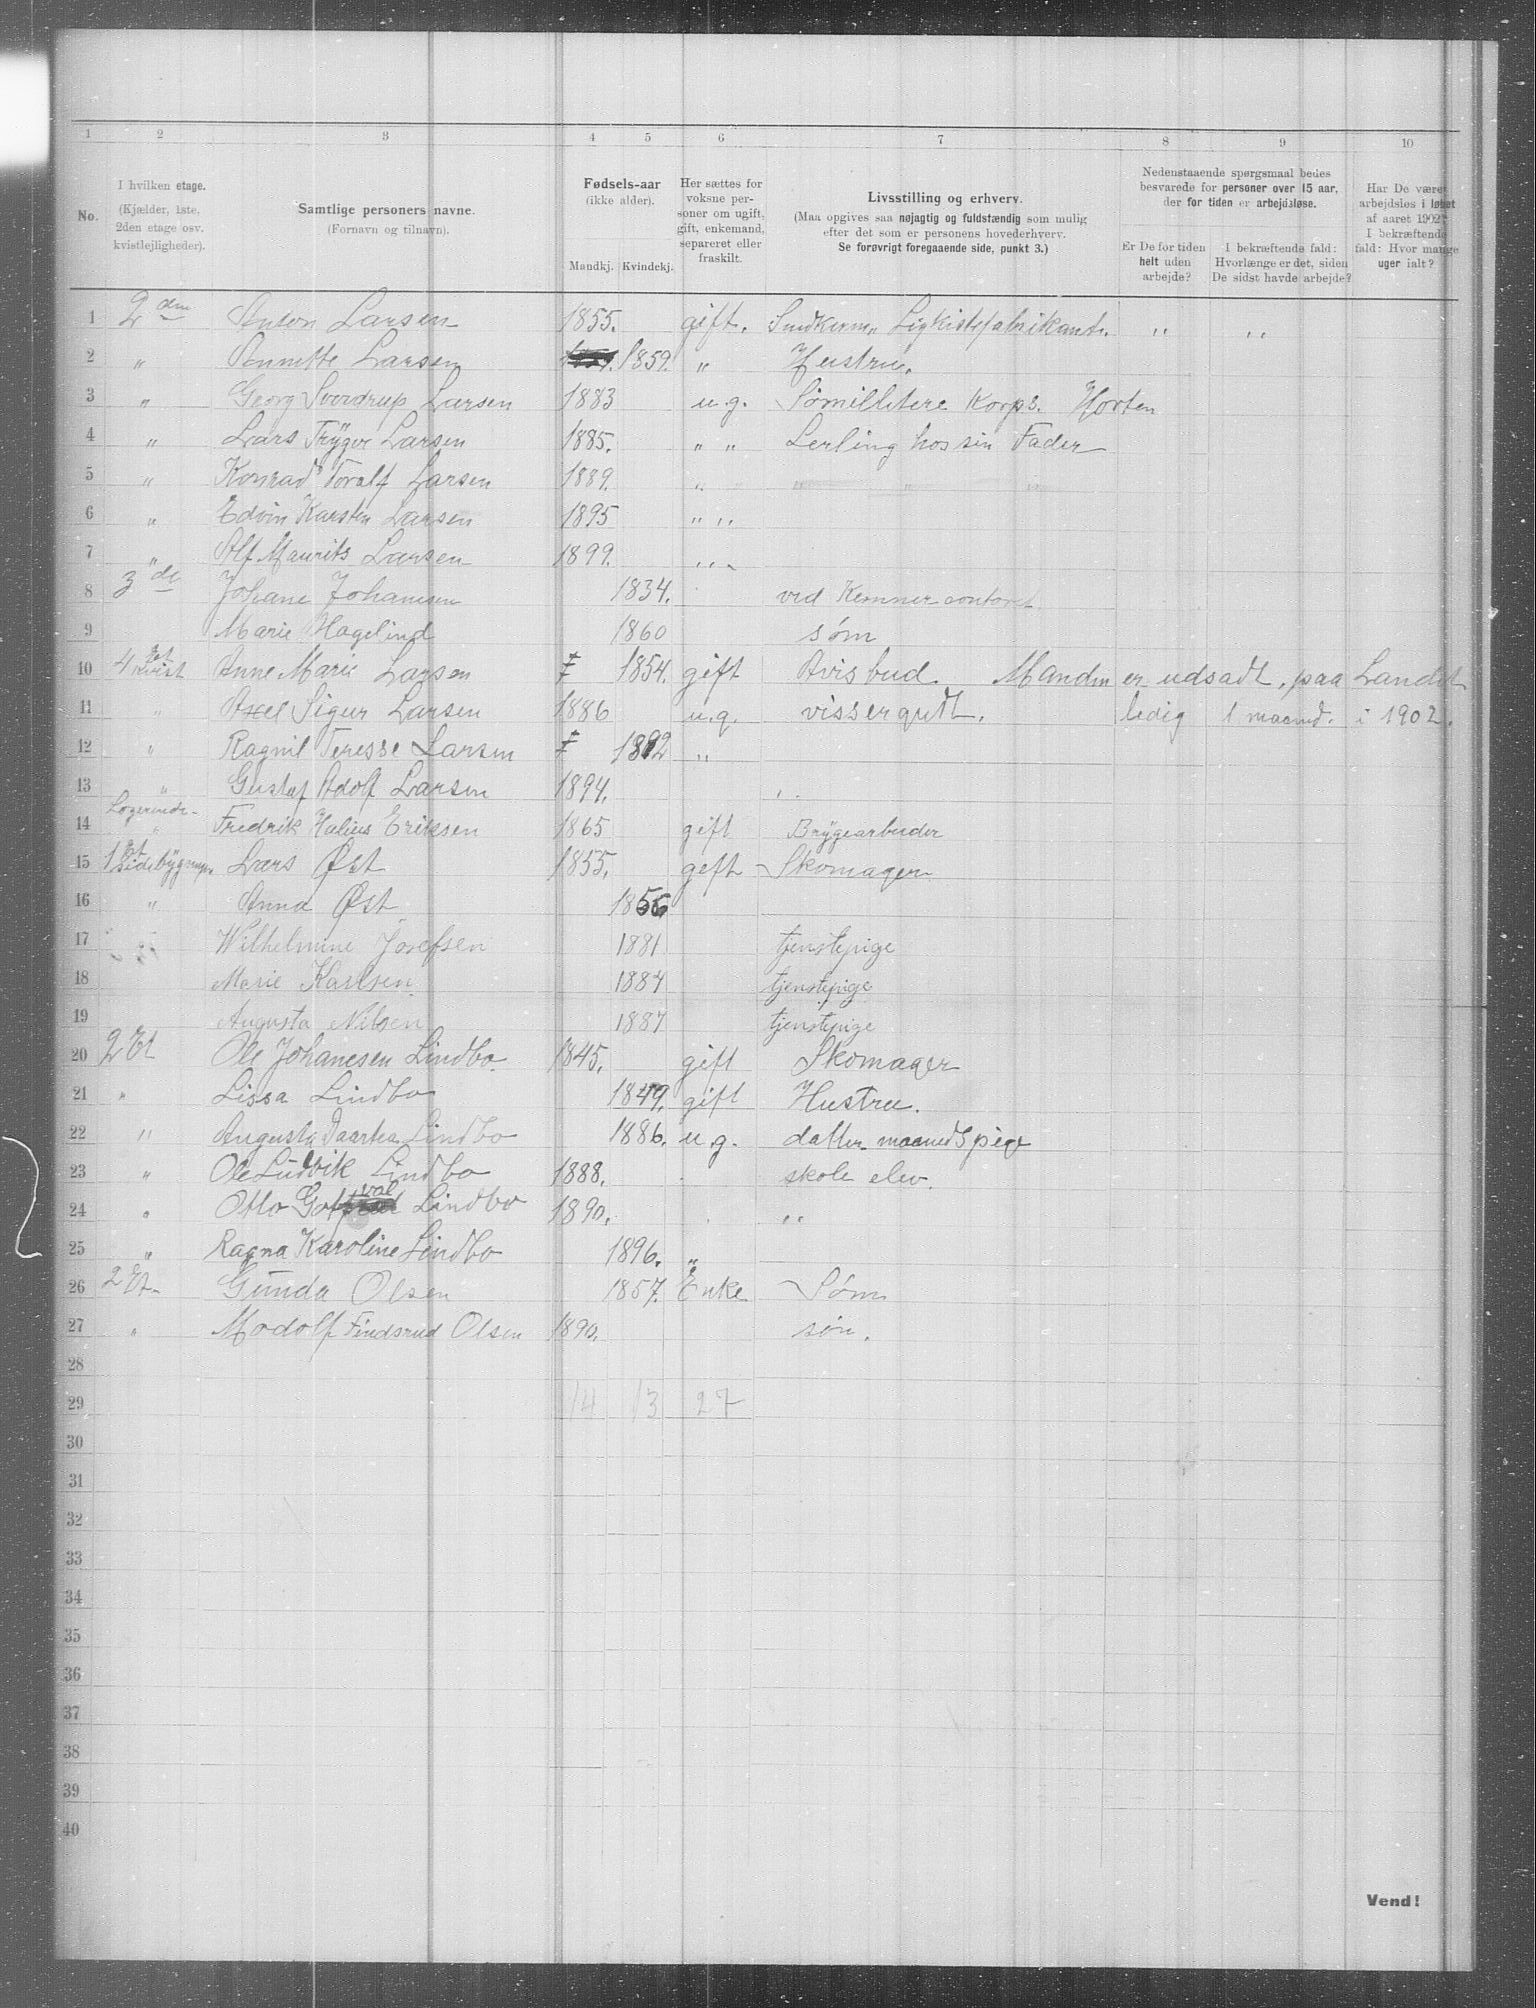 1 2 3 4 5 6 7 8 9 10
No.
I hvilken etage.
(Kjælder, 1ste,
2den etage osv.
kvistlejligheder).
Samtlige personers navne.
(Fornavn og tilnavn).
Fødsels-aar
(ikke alder).
Mandkj. Kvindekj.
Her sættes for
voksne per-
soner om ugift,
gift, enkemand,
separeret eller
fraskilt.
Livsstilling og erhverv.
(Maa opgives saa nøjagtig og fuldstændig som mulig
efter det som er personens hovederhverv.
Se forøvrigt foregaaende side, punkt 3.)
Nedenstaaende spørgsmaal bedes
besvarede for personer over 15 aar,
der for tiden er arbejdsløse.
Er De for tiden
helt uden
arbejde?
I bekræftende fald:
Hvorlænge er det, siden
De sidst havde arbejde?
Har De været
arbejdsløs i løbet
af aaret 1902?
I bekræftende
fald: Hvor mange
uger ialt?
1 2den Anton Larsen 1855. gift. Snedkerm. Ligkistefabrikant. " "
2 " Larsen 1859. " Hustru.
3 " Georg Sverdrup Larsen 1883 u.g. Sømillitere Korps. Horten
4 " Lars Trÿgve Larsen 1885. " " Lerling hos sin Fader
5 " Konrad Toralf Larsen 1889. " " " " "
6 " Edvin Karsten Larsen 1895 " "
7 " Alf Maurits Larsen 1899. " "
8 3de Johane Johanesen 1834. ved Kemner contoret
9 Marie Hagelind 1860 søm
10 4et kvist Anne Marie Larsen 1854. gift Avisbud. Manden er udsadt, paa Landet
11 " Axel Sigur Larsen 1886 u.g. vissergutt. ledig 1 maaned. i 1902.
12 " Ragnil Teresse Larsen 1892 "
13 " Gustaf Adolf Larsen 1894. "
Logerende-
14 " Fredrik Eriksen 1865 gift Brÿgearbeider
15 1et sidebÿgningen Lars Øst 1855. gift Skomager
16 " Anna Øst
17 Wilhelmine Josefsen 1881 tjenstepige
18 Marie Karlsen 1884 tjenstepige
19 Augusta Nilsen 1887 tjenstepige
20 2 Et Ole Johanesen Lindbo 1845. gift Skomager
21 " Lissa Lindbo 1849. gift Hustru.
22 " Augusta Daartea Lindbo 1886. u.g. datter maanedspige
23 " Ole Ludvik Lindbo 1888. skole elev.
24 " Otto Gotval Lindbo 1890. "
25 " Ragna Karoline Lindbo 1896. "
26 2 Et. Gunda Olsen 1857. Enke Søm
27 " Modolf Findsrud Olsen 1890. søn.
28
29 14 13 27
30
31
32
33
34
35
36
37
38
39
40
Vend!